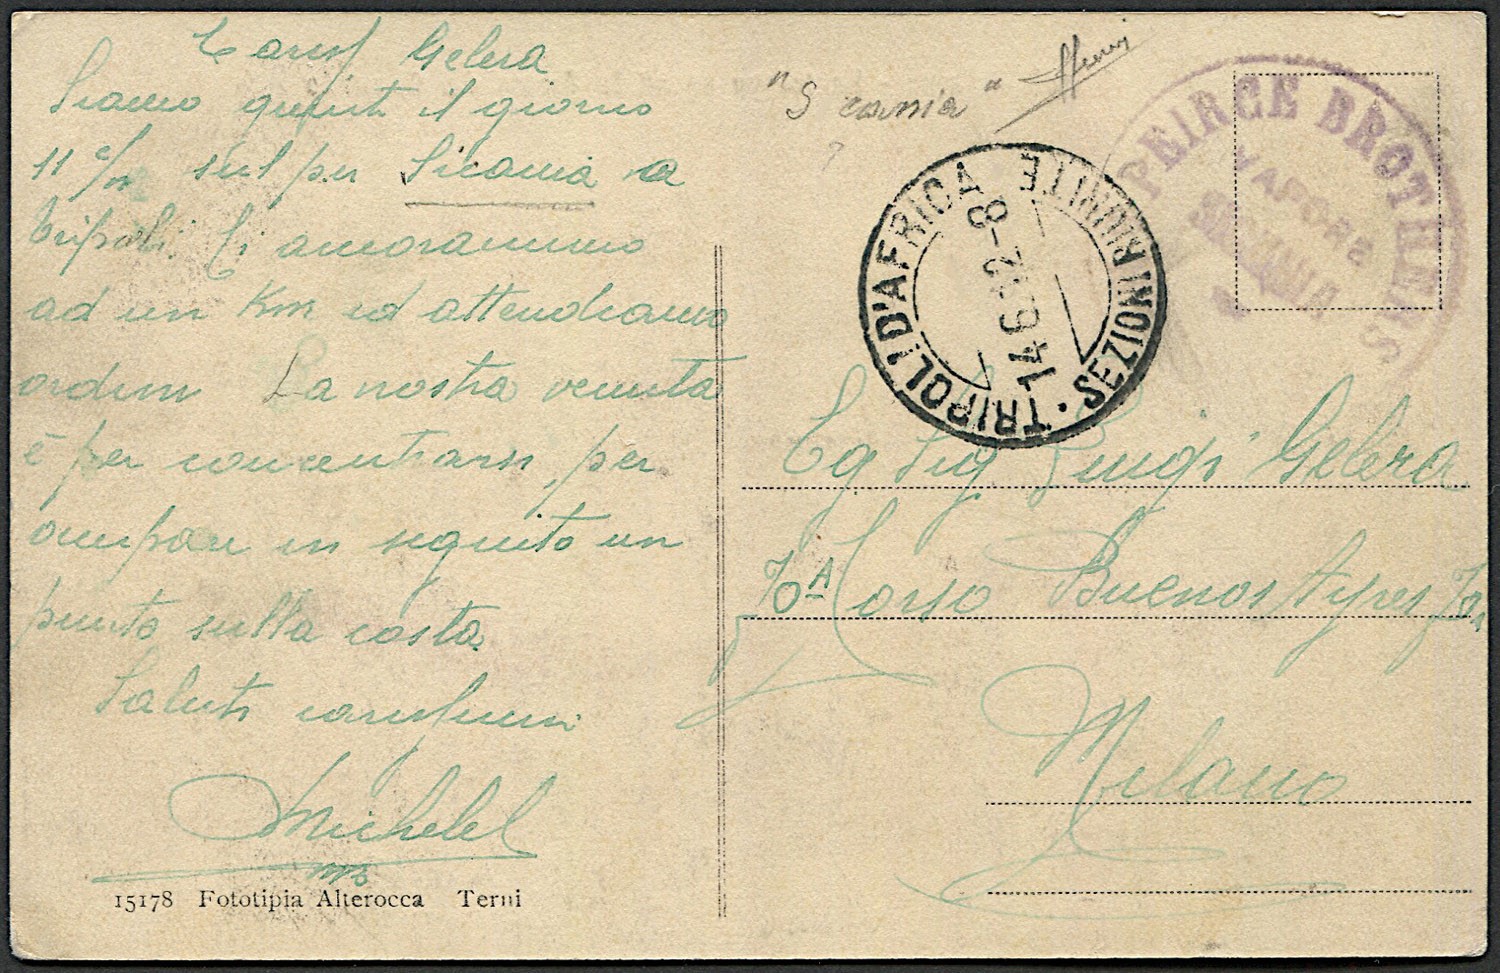 Cariss Gelera
Siamo giunti il giorno
11 c/m sul pir Sicania a
Tripoli. Ci ancorammo
ad un Km ed attendiamo
ordini La nostra venuta
è per concentrarsi, per
occupare in seguito un
punto sulla costa.
Saluti carissimi
Michele
15178 Fototipia Alterocca Terni
"Scania"
?
PEIRCE BROTHERS
VAPORE
SICANIA
TRIPOLI D'AFRICA · SEZIONI RIUNITE
8-12 14 6
Eg Sig Luigi Gelera
70A Corso Buenos Ayres 70A
Milano